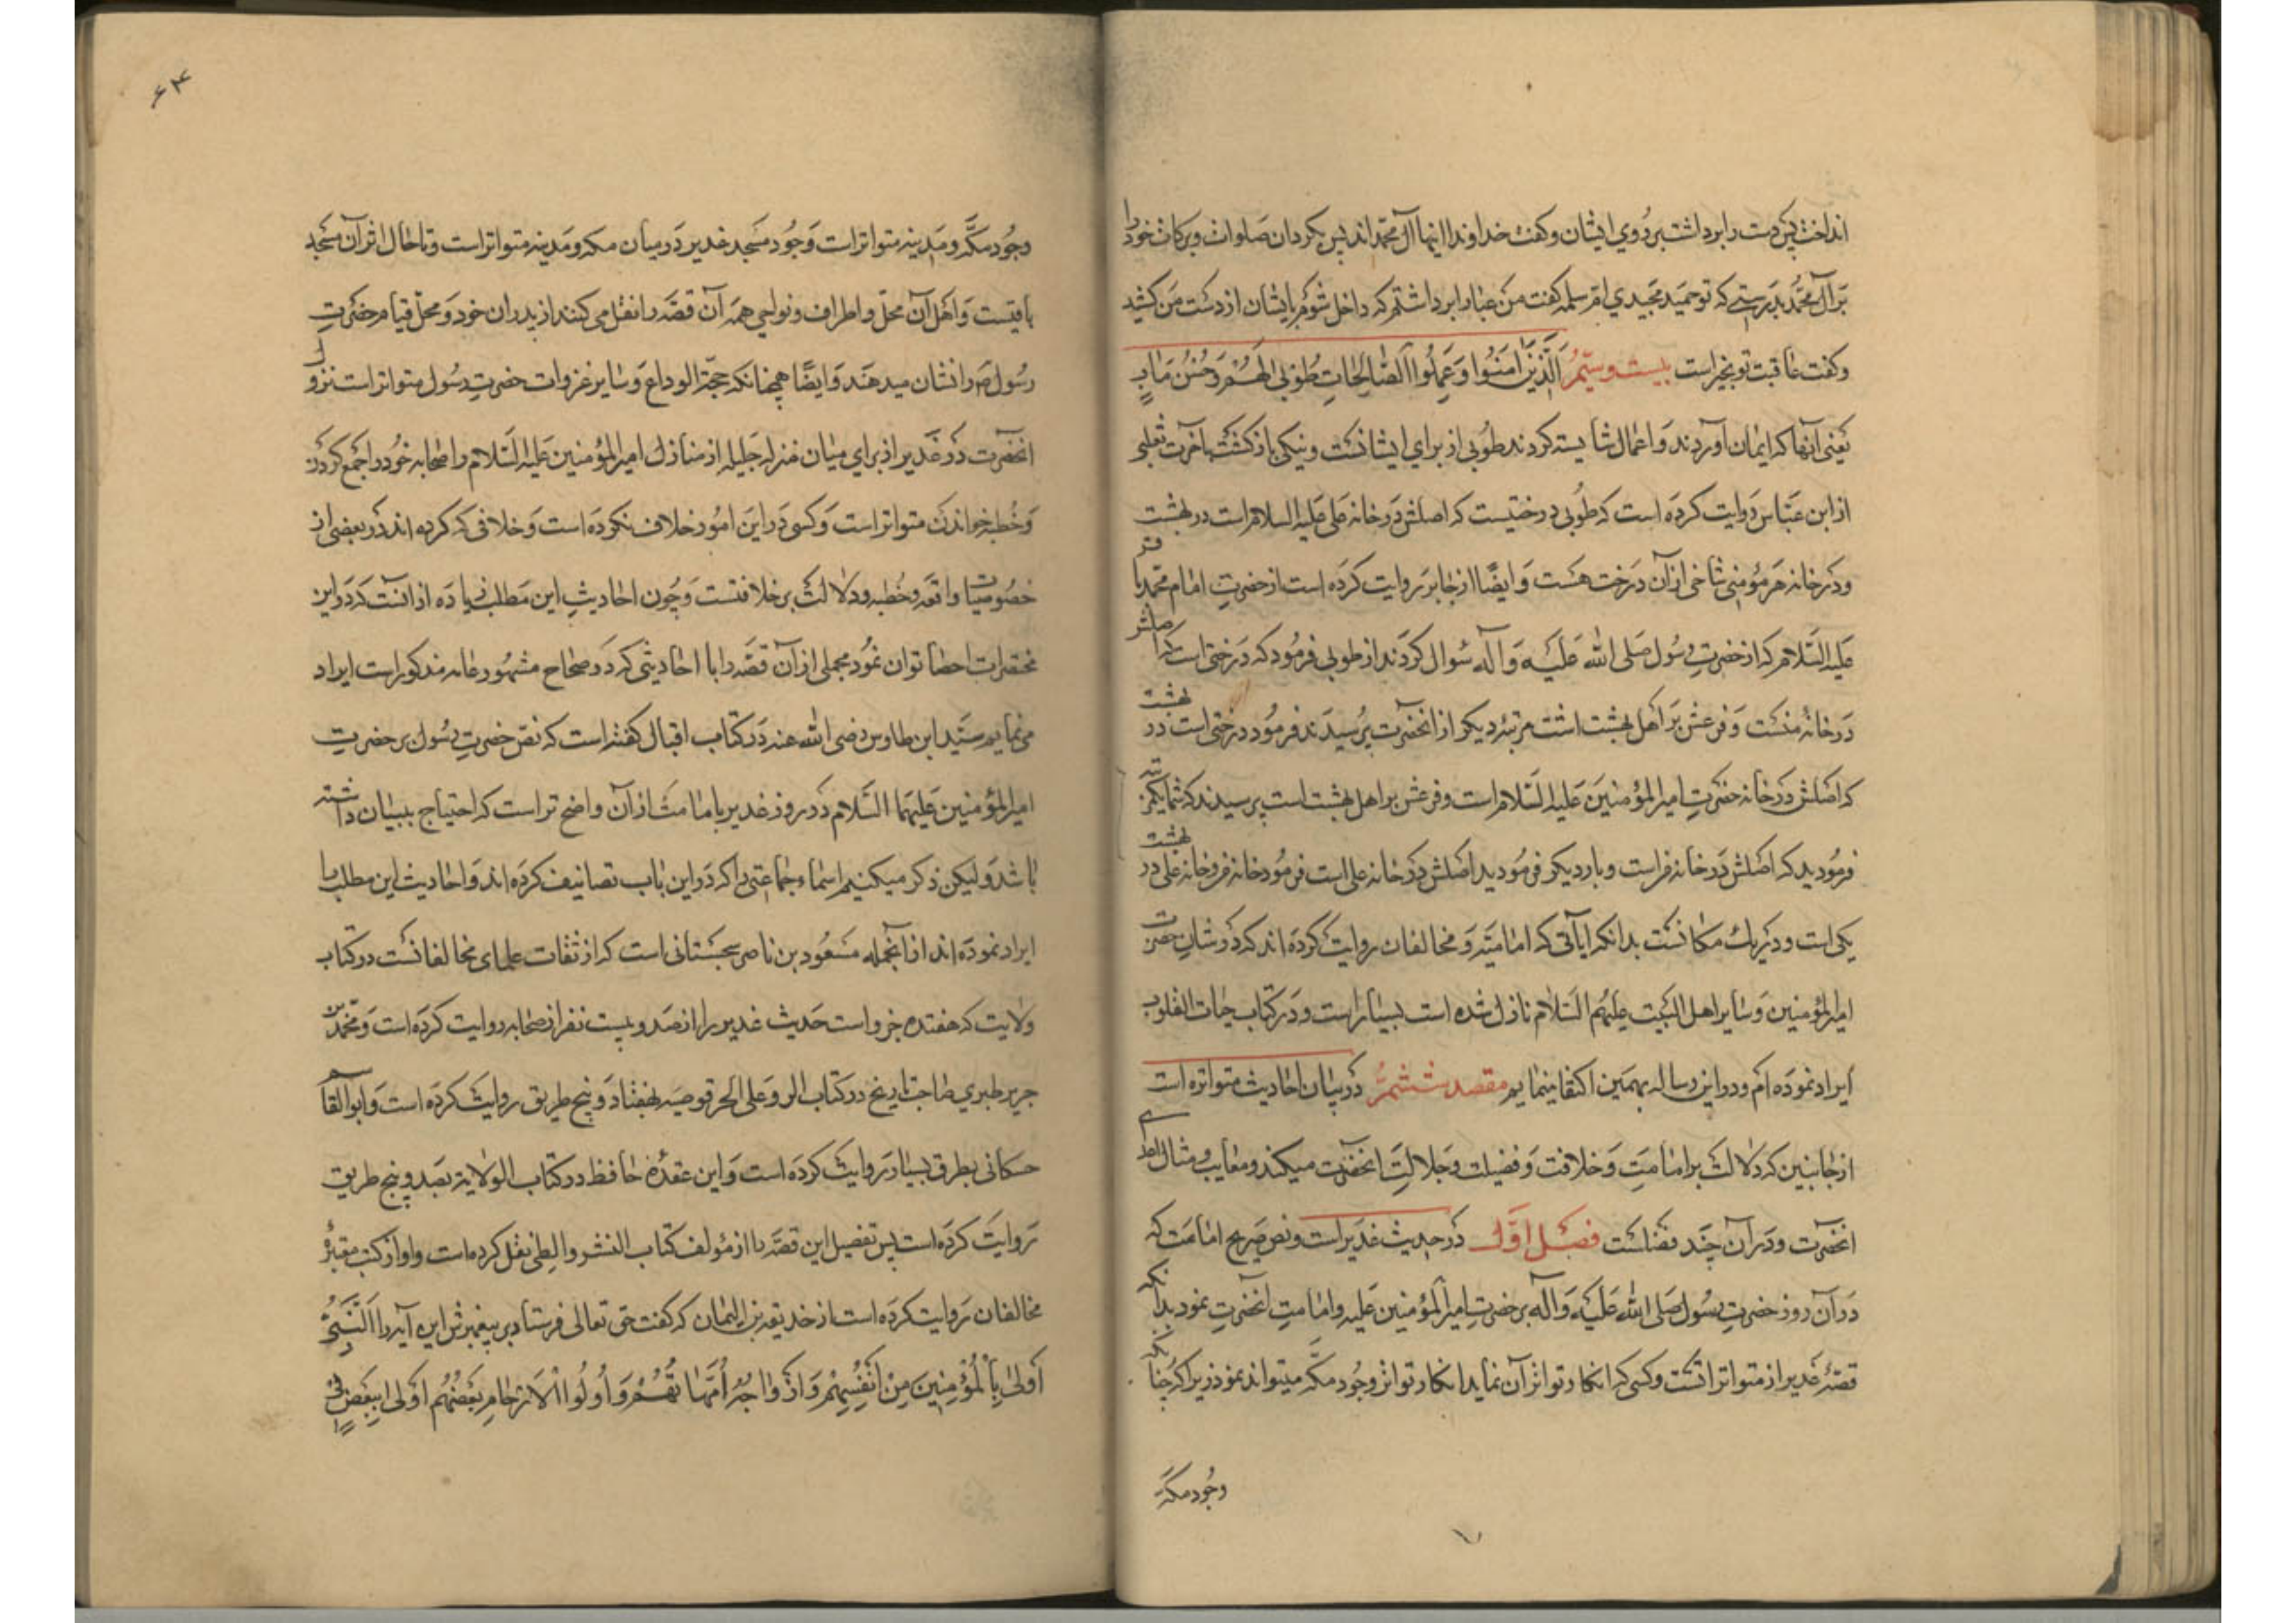 انداخت پس دست را برداشت بر روی ایشان و گفت خداوندا اینها آل محمّداند پس بگردان صلوات و برکات خود را
بر آل محمّد بدرستی که تو حمید مجیدی امّ سلمه گفت من عبا را برداشتم که داخل شوم با ایشان از دست من کشید
و گفت عاقبت تو بخیر است بیست و سیّم الَّذِینَ امَنُوا وَعَمِلُوا الصَّالِحَاتِ طُوبی لَهُمْ وَحُسْنُ مَابٍ
یعنی آنها که ایمان آوردند و اعمال شایسته کردند طوبی از برای ایشانست و نیکی بازگشت آخرت ثعلبی
از ابن عبّاس روایت کرده است که طوبی درختیست که اصلش در خانه علی علیه السلام است در بهشت
و در خانه هر مؤمنی شاخی از آن درخت هست و ایضًا از جابر روایت کرده است از حضرت امام محمّد باقر
علیه السّلام که از حضرت رسول صلی الله علیه و آله سؤال کردند از طوبی فرمود که درختی است که اصلش
در خانهٔ منست و فرعش بر اهل بهشت است مرتبه دیگر از آنحضرت پرسیدند فرمود درختی است در بهشت
که اصلش در خانه حضرت امیر المؤمنین علیه السّلام است و فرعش بر اهل بهشت است پرسیدند که شما یکمرتبه
فرمودید که اصلش در خانه من است و بار دیگر فرمودید اصلش در خانه علی است فرمود خانه من و خانه علی در بهشت
یکی است و در یک مکانست بدانکه ایاتی که امامیّه و مخالفان روایت کرده اند که در شان حضرت
امیر المؤمنین و سایر اهل البیت علیهم السّلام نازل شده است بسیار است و در کتاب حیات القلوب
ایراد نموده ام و در این رساله بهمین اکتفا مینمایم مقصد ششم در بیان احادیث متواتره است
از جانبین که دلالت بر امامت و خلافت و فضیلت و جلالت آنحضرت میکند و معایب و مثالب اعدای
آنحضرت و در آن چند فصلست فصل اوّل در حدیث غدیر است و نص صریح امامت که
در آن روز حضرت رسول صلی الله علیه و آله بر حضرت امیر المؤمنین علیه و امامت آنحضرت نمود بدانکه
قصّهٔ غدیر از متواتراتست و کسی که انکار تواتر آن نماید انکار تواتر وجود مکّه میتواند نمود زیرا که چنانکه
وجود مکّه
۶۴
وجود مکّه و مدینه متواتر است و وجود مسجد غدیر در میان مکه و مدینه متواتر است و تا حال اثر آن مسجد
باقیست و اهل آن محلّ و اطراف و نواحی همه آن قصّه را نقل می کنند از پدران خود و محلّ قیام حضرت
رسول ص را نشان میدهند و ایضًا همچنانکه حجّة الوداع و سایر غزوات حضرت رسول متواتر است نزول
آنحضرت در غدیر از برای بیان منزله جلیله از منازل امیر المؤمنین علیه السّلام و اصحابه خود را جمع کردن
و خطبه خواندن متواتر است و کسی در این امور خلاف نکرده است و خلافی که کرده اند در بعضی از
خصوصیات واقعه و خطبه و دلالت بر خلافتست و چون احادیث این مطلب زیاده از آنست که در این
مختصرات احصا توان نمود مجملی از آن قصّه را با احادیثی که در صحاح مشهور عامه مذکور است ایراد
می نمایم سیّد ابن طاوس رضی الله عنه در کتاب اقبال گفته است که نصّ حضرت رسول بر حضرت
امیر المؤمنین علیهما السّلام در روز غدیر بامامت از آن واضح تر است که احتیاج ببیان داشته
باشد و لیکن ذکر میکنیم اسماء جماعتی را که در این باب تصانیف کرده اند و احادیث این مطلب را
ایراد نموده اند از آنجمله مسعود بن ناصر سجستانی است که از ثقات علمای مخالفانست در کتاب
ولایت که هفتده جزو است حدیث غدیر را از صد و بیست نفر از صحابه روایت کرده است و محمّد بن
جریر طبری صاحب تاریخ در کتاب الرد علی الحرقوصیه بهفتاد و پنج طریق روایت کرده است و ابو القاسم
حسکانی بطرق بسیار روایت کرده است و ابن عقده حافظ در کتاب الولایة بصد و پنج طریق
روایت کرده است پس تفصیل این قصّه را از مؤلف کتاب النشر و الطی نقل کرده است و او از کتب معتبرهٔ
مخالفان روایت کرده است از حذیفه بن الیمان که گفت حق تعالی فرستاد بر پیغمبرش این آیه را اَلنَّبِیُّ
اَوْلی بِالْمُؤْمِنِینَ مِنْ اَنْفُسِهِمْ وَاَزْوَاجُهُ اُمَّهَاتُهُمْ وَاُولُوا الْاَرْحَامِ بَعْضُهُمْ اَوْلی بِبَعْضٍ فی